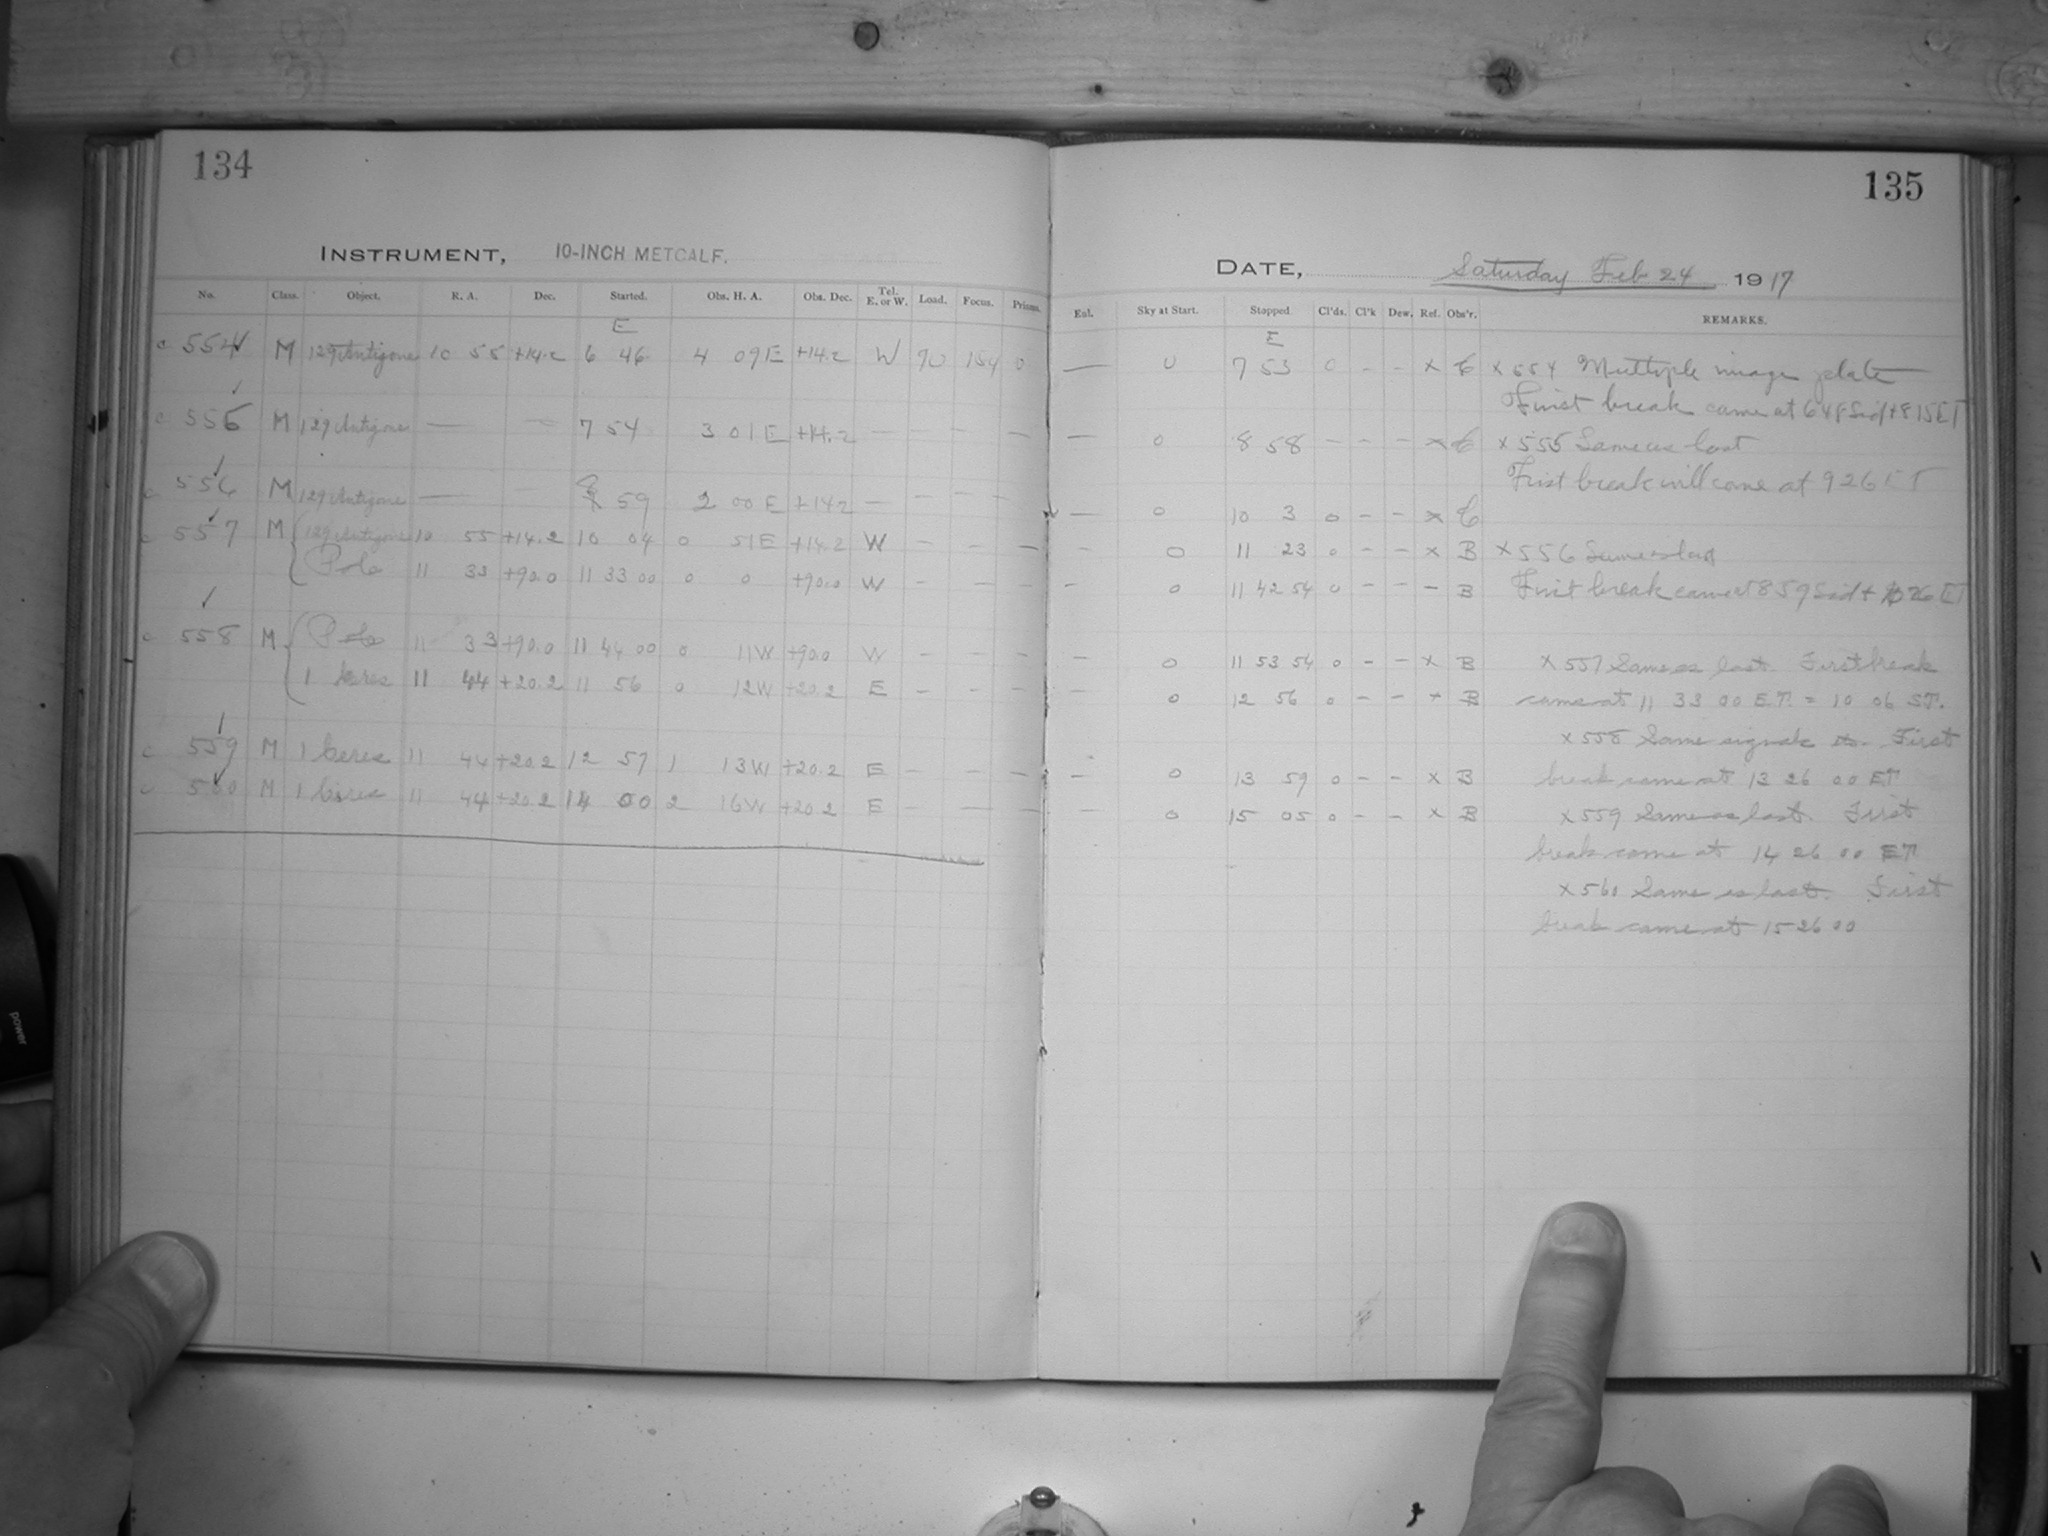 134
INSTRUMENT, 10-INCH METCALF.
No. Class. Object. R. A. Dec. Started. Obs. H. A. Obs. Dec. Tel. E. or W. Load. Focus. Prisms.
E
c 554 M 129 Antigone 10 55 +14.2 6 46 4 09E +14.2 W 70 154 0
c 555 M 129 Antigone — — 7 54 3 01E +14.2 — — — —
c 556 M 129 Antigone — — 8 59 2 00E +14.2 — — — —
c 557 M 129 Antigone 10 55 +14.2 10 04 0 51E +14.2 W — — —
Pole 11 33 +90.0 11 33 00 0 0 +90.0 W — — —
c 558 M Pole 11 33 +90.0 11 44 00 0 11W +90.0 W — — —
1 Ceres 11 44 +20.2 11 56 0 12W +20.2 E — — —
c 559 M 1 Ceres 11 44 +20.2 12 57 1 13W +20.2 E — — —
c 560 M 1 Ceres 11 44 +20.2 14 00 2 16W +20.2 E — — —
135
DATE, Saturday Feb 24 1917
Enl. Sky at Start. Stopped Cl'ds. Cl'k Dew. Ref. Obs'r. REMARKS.
E
— 0 7 53 0 - - x C x 554 Multiple image plate
First break came at 648 Sid + 815 ET
— 0 8 58 - - - x C x 555 Same as last
First break will come at 926 ET
— 0 10 3 0 - - x C
- 0 11 23 0 - - x B x 556 Same as last
- 0 11 42 54 0 - - - B First break came at 859 Sid + 26 ET
- 0 11 53 54 0 - - x B x 557 Same as last. First break
0 12 56 0 - - x B came at 11 33 00 E.T. = 10 06 S.T.
x 558 Same signals First
- 0 13 59 0 - - x B break came at 13 26 00 ET
- 0 15 05 0 - - x B x 559 Same as last. First
break came at 14 26 00 ET
x 560 Same as last. First
break came at 15 26 00
power